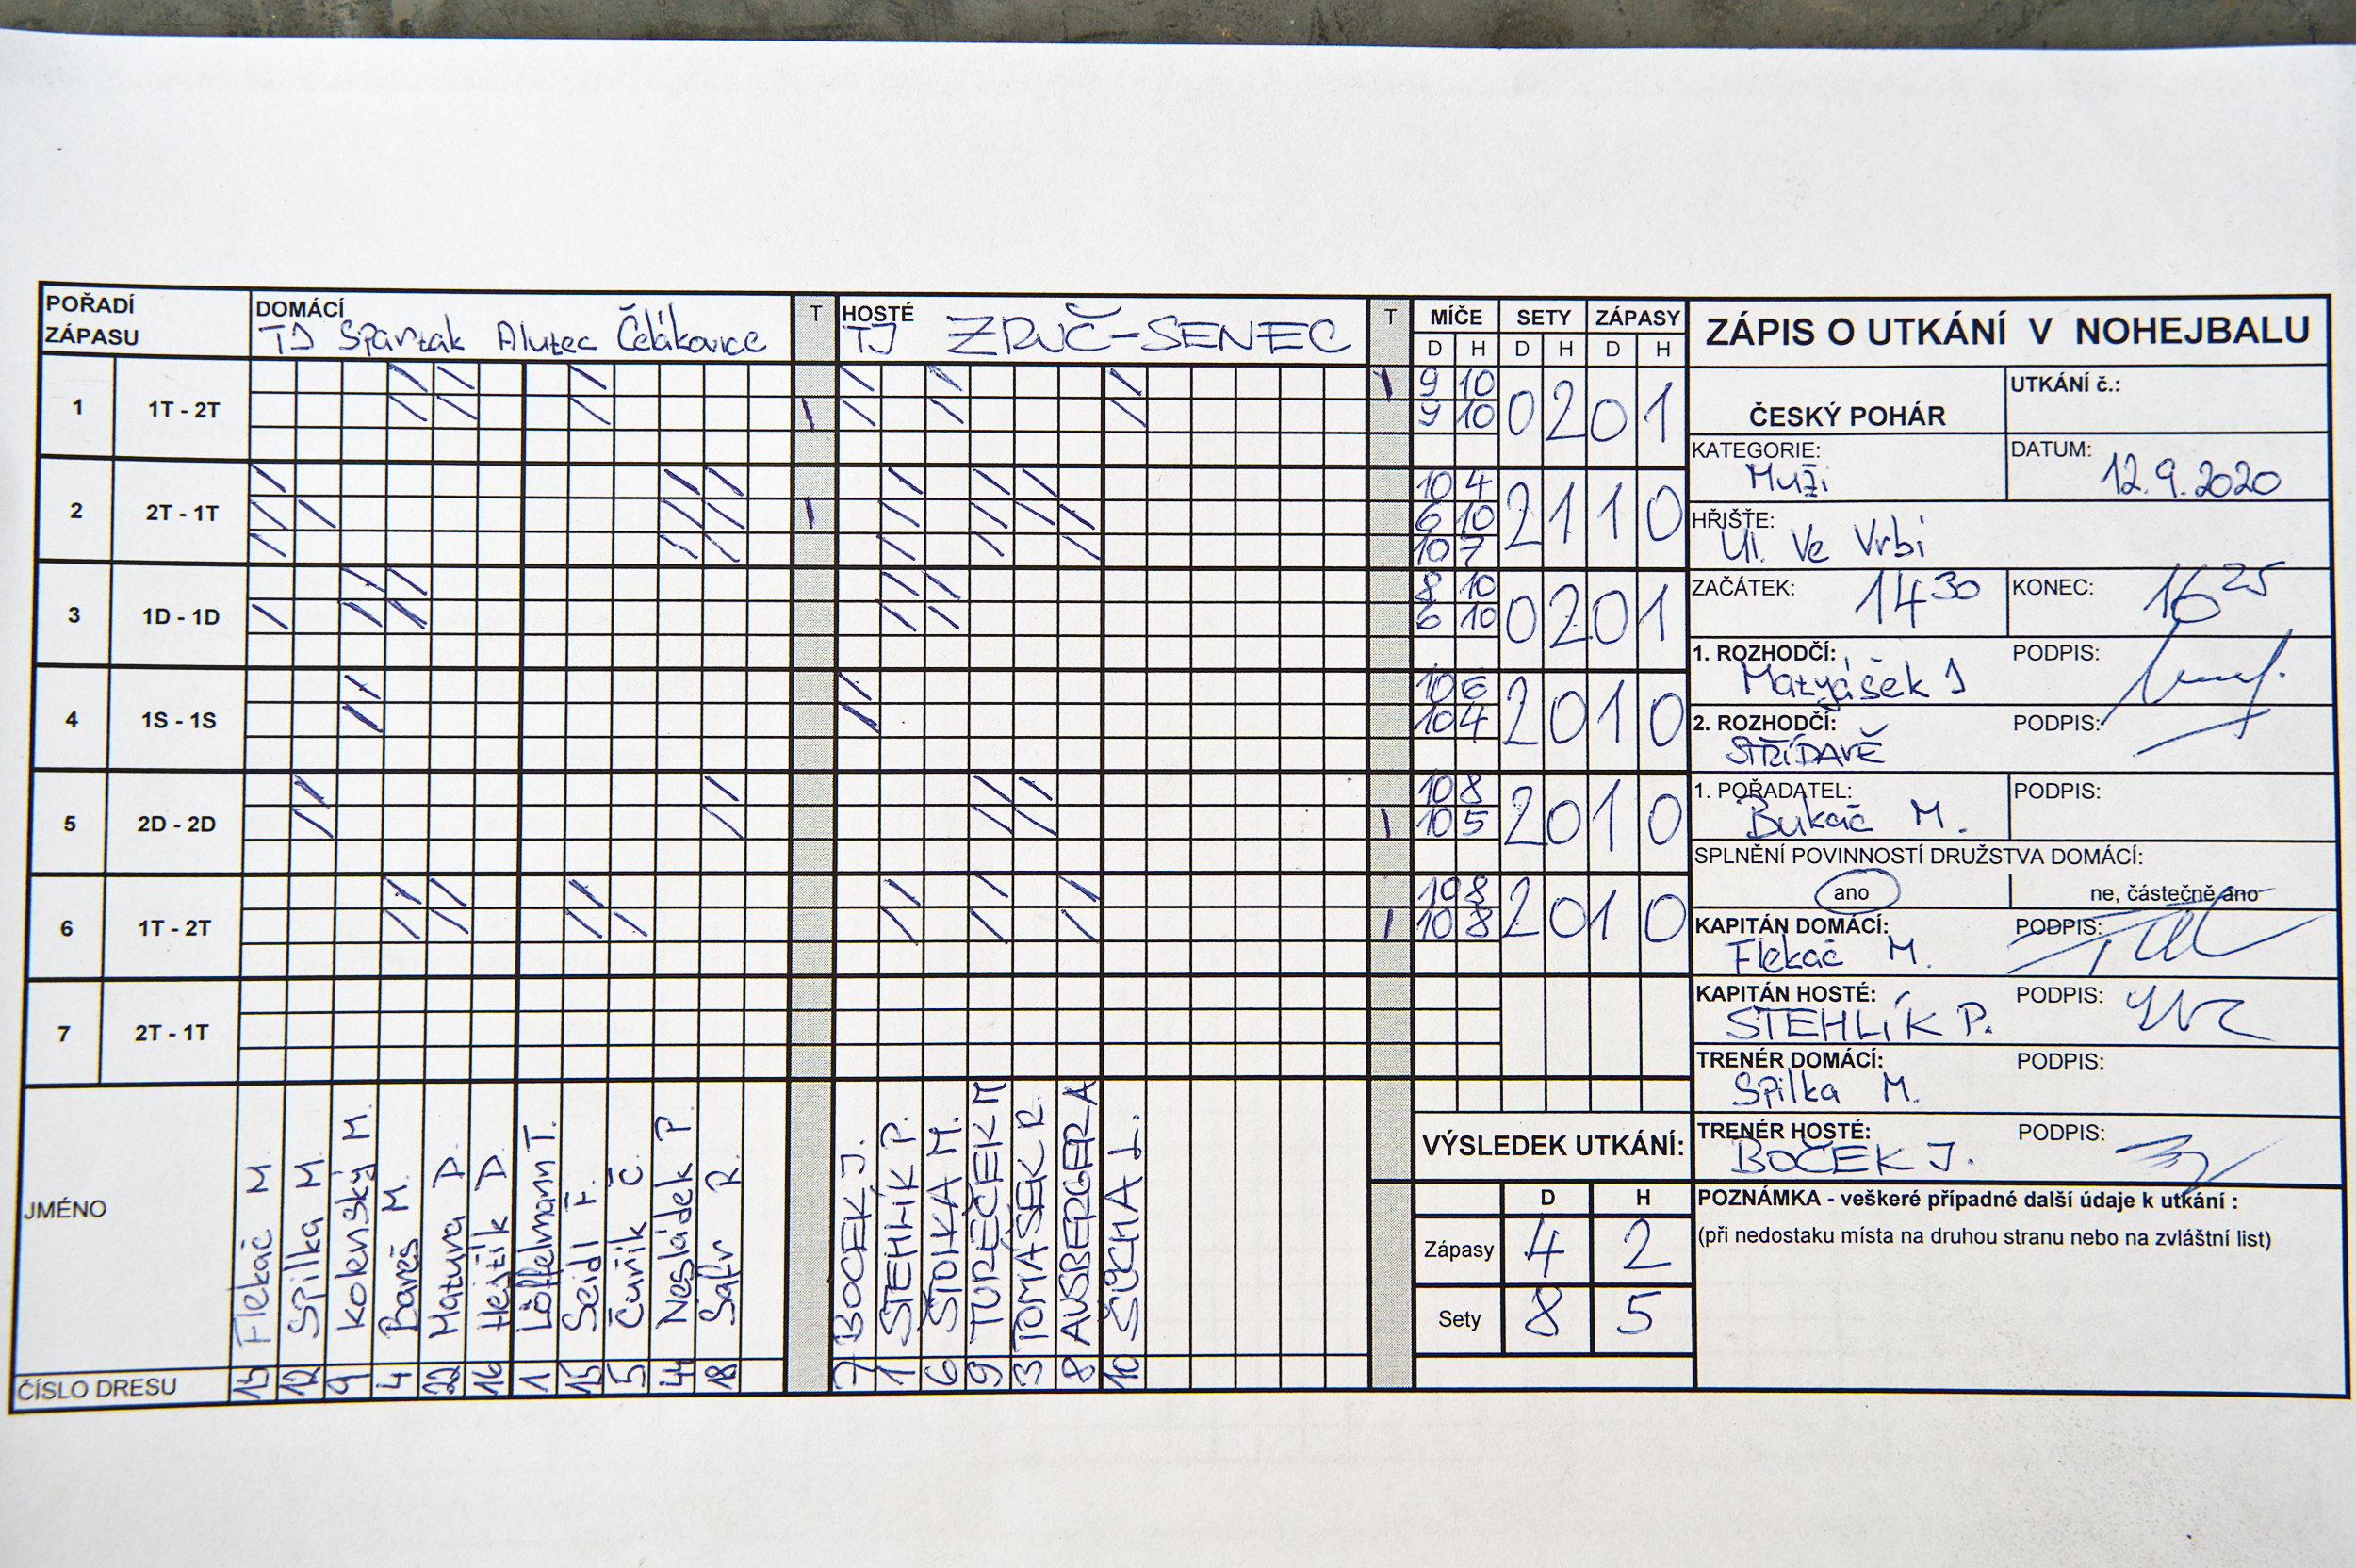 POŘADÍ ZÁPASU DOMÁCÍ T HOSTÉ T MÍČE SETY ZÁPASY
TJ Spartak Alutec Čelákovice TJ ZRUČ-SENEC D H D H D H
1 1T - 2T 9 10 0 2 0 1
9 10
2 2T - 1T 10 4 2 1 1 0
6 10
10 7
3 1D - 1D 8 10 0 2 0 1
6 10
4 1S - 1S 10 6 2 0 1 0
10 4
5 2D - 2D 10 8 2 0 1 0
10 5
6 1T - 2T 10 8 2 0 1 0
10 8
7 2T - 1T
JMÉNO
Flekač M.
Spilka M.
Kolenský M.
Bareš M.
Matura D.
Hejtík D.
Löffelmann T.
Seidl F.
Čuřík Č.
Nesládek P.
Šafr R.
BOČEK J.
STEHLÍK P.
ŠTOLKA M.
TUREČEK M
TOMÁŠEK R.
AUSBERGER A
SÜCHA L.
ČÍSLO DRESU 13 12 9 4 22 16 1 15 5 44 18 7 1 6 9 3 8 10
VÝSLEDEK UTKÁNÍ:
D H
Zápasy 4 2
Sety 8 5
ZÁPIS O UTKÁNÍ V NOHEJBALU
ČESKÝ POHÁR UTKÁNÍ č.:
KATEGORIE: DATUM:
Muži 12.9.2020
HŘIŠTĚ:
Ul. Ve Vrbí
ZAČÁTEK: 14 30 KONEC: 16 25
1. ROZHODČÍ: PODPIS:
Matyášek J
2. ROZHODČÍ: PODPIS:
STŘÍDAVĚ
1. POŘADATEL: PODPIS:
Bukač M.
SPLNĚNÍ POVINNOSTÍ DRUŽSTVA DOMÁCÍ:
ano ne, částečně ano
KAPITÁN DOMÁCÍ: PODPIS:
Flekač M.
KAPITÁN HOSTÉ: PODPIS:
STEHLÍK P.
TRENÉR DOMÁCÍ: PODPIS:
Spilka M.
TRENÉR HOSTÉ: PODPIS:
BOČEK J.
POZNÁMKA - veškeré případné další údaje k utkání :
(při nedostaku místa na druhou stranu nebo na zvláštní list)